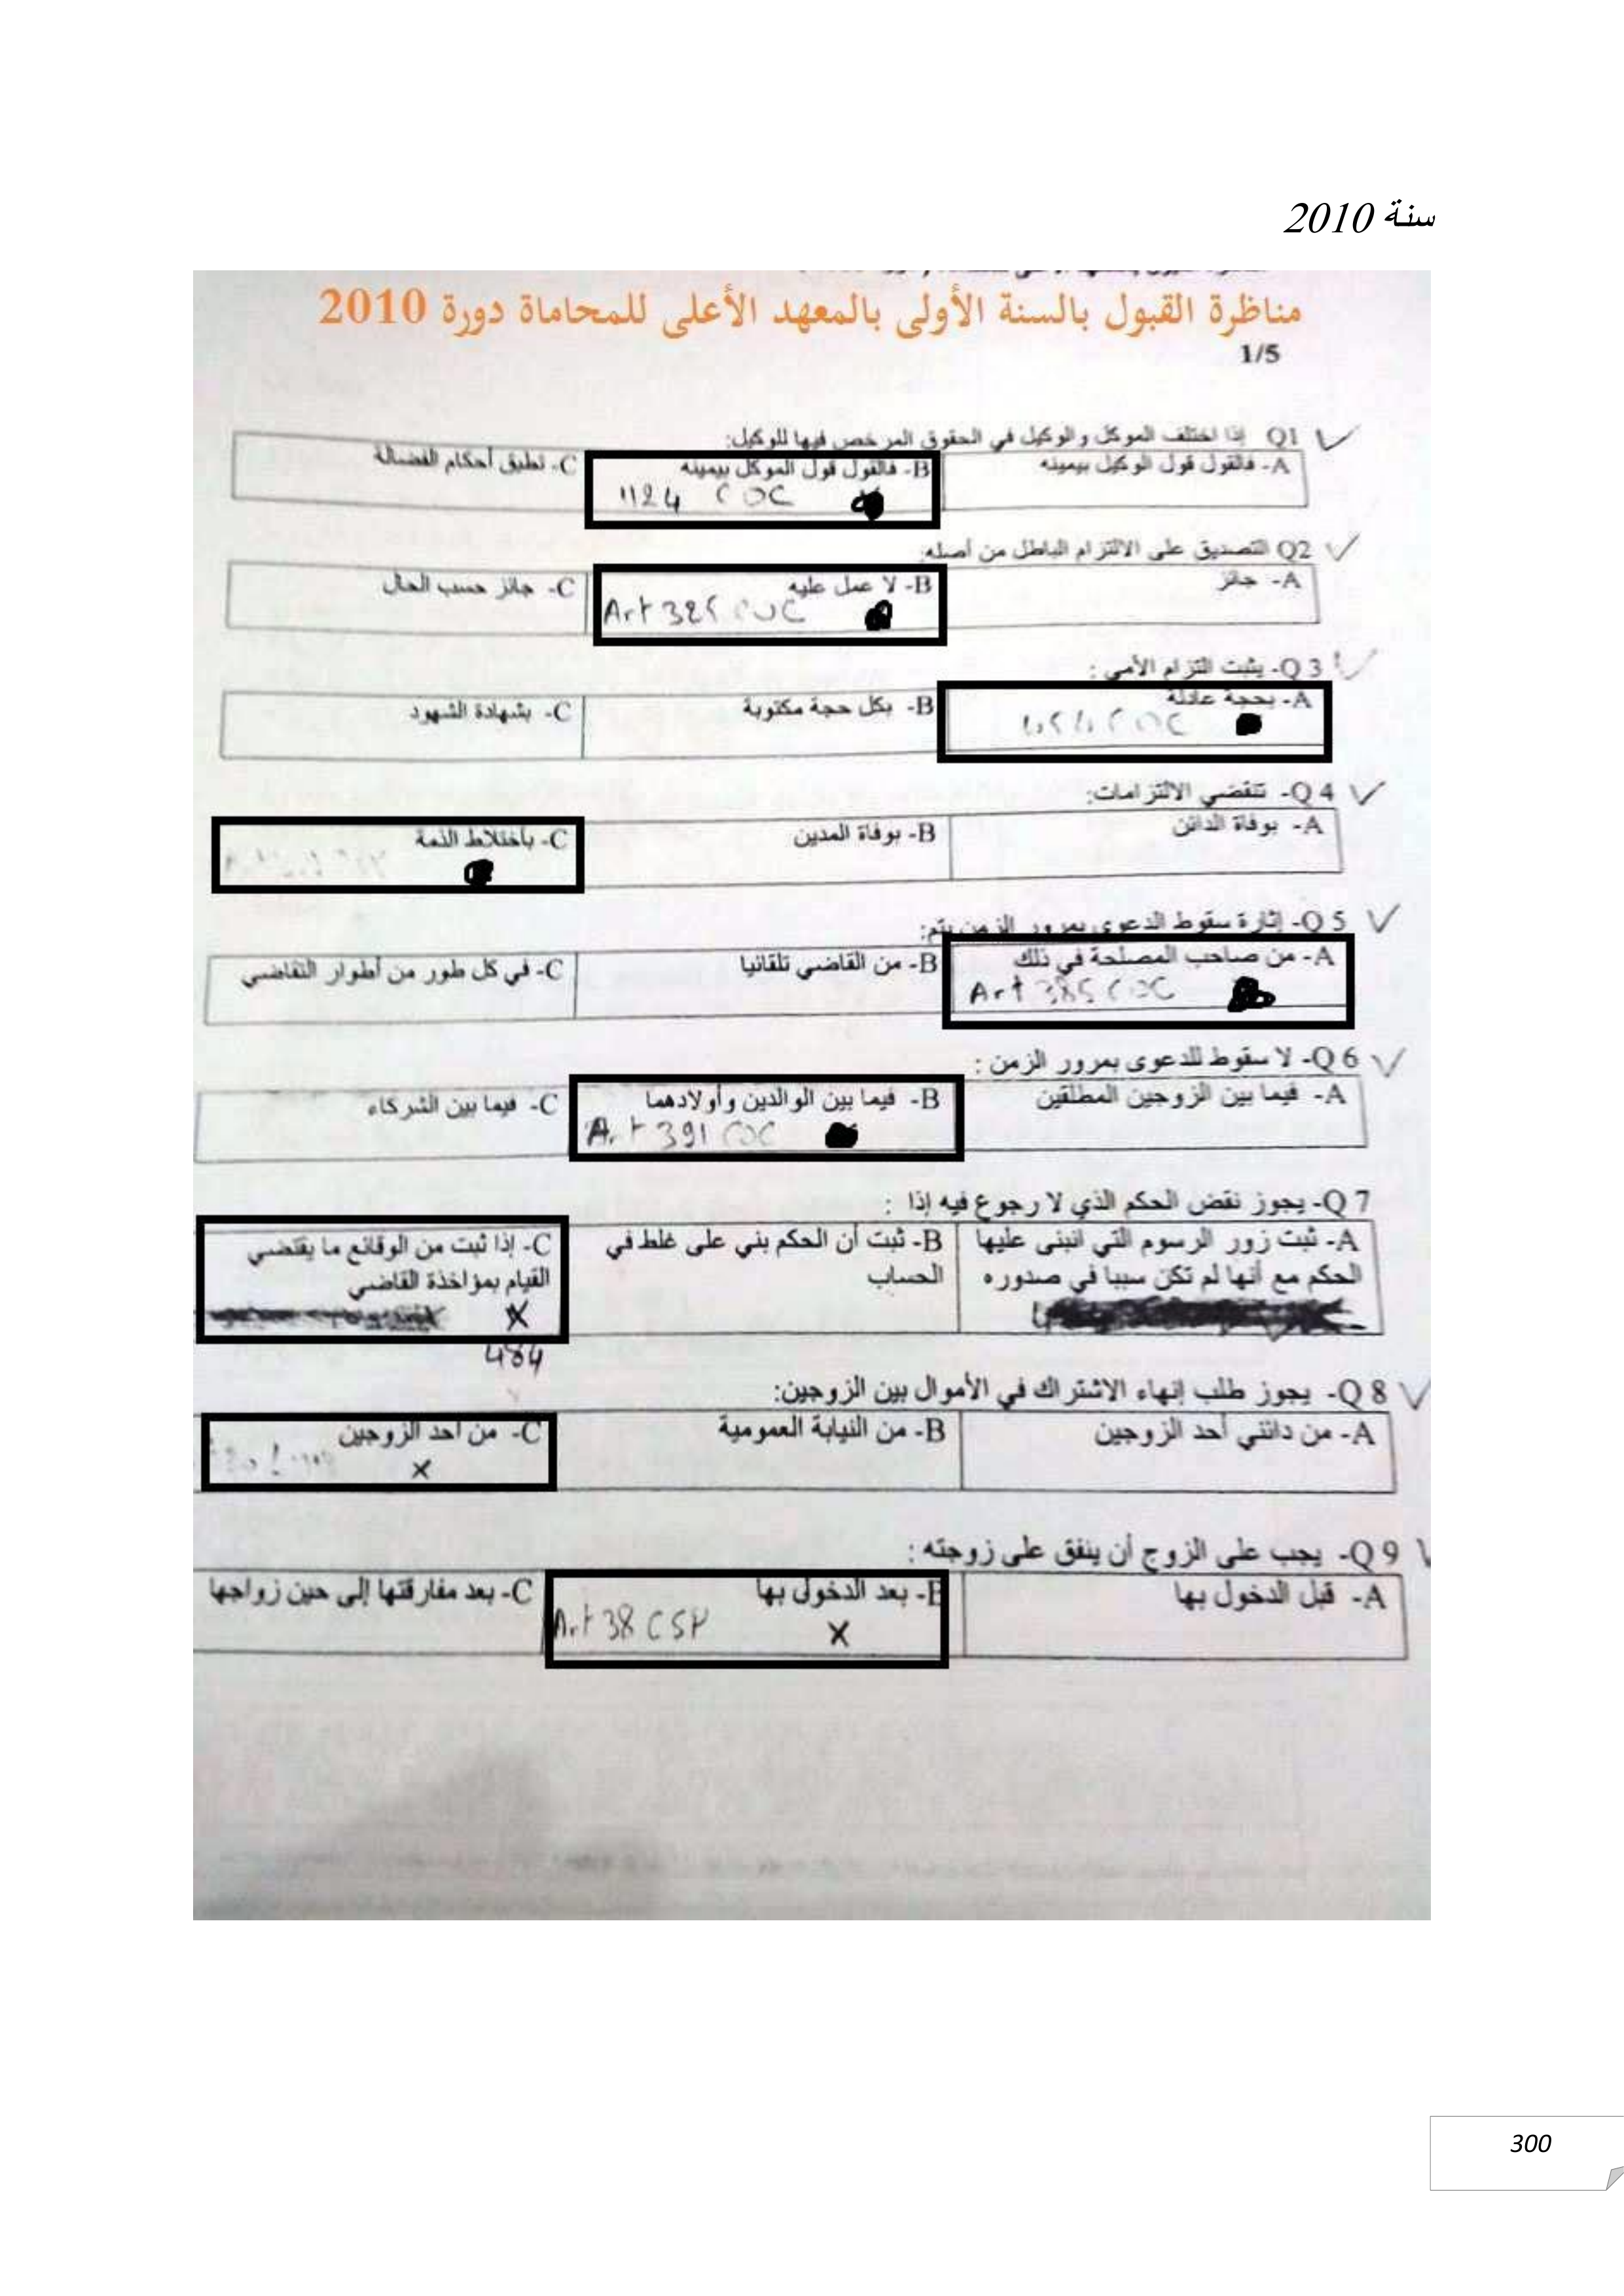 سنة 2010
مناظرة القبول بالسنة الأولى بالمعهد الأعلى للمحاماة دورة 2010
1/5
Q1 إذا اختلف الموكل والوكيل في الحقوق المرخص فيها للوكيل:
A- فالقول قول الوكيل بيمينه
B- فالقول قول الموكل بيمينه
1124 COC
C- تطبق أحكام الفضالة
Q2 التصديق على الالتزام الباطل من أصله:
A- جائز
B- لا عمل عليه
Art COC
C- جائز حسب الحال
Q 3- يثبت التزام الأمي :
A- بحجة عادلة
COC
B- بكل حجة مكتوبة
C- بشهادة الشهود
Q 4- تنقضي الالتزامات:
A- بوفاة الدائن
B- بوفاة المدين
C- باختلاط الذمة
Q 5- إثارة سقوط الدعوى بمرور الزمن يتم:
A- من صاحب المصلحة في ذلك
Art 385 COC
B- من القاضي تلقائيا
C- في كل طور من أطوار التقاضي
Q 6- لا سقوط للدعوى بمرور الزمن :
A- فيما بين الزوجين المطلقين
B- فيما بين الوالدين وأولادهما
Art 391 COC
C- فيما بين الشركاء
Q 7- يجوز نقض الحكم الذي لا رجوع فيه إذا :
A- ثبت زور الرسوم التي انبنى عليها
الحكم مع أنها لم تكن سببا في صدوره
B- ثبت أن الحكم بني على غلط في
الحساب
C- إذا ثبت من الوقائع ما يقتضي
القيام بمؤاخذة القاضي
X
484
Q 8- يجوز طلب إنهاء الاشتراك في الأموال بين الزوجين:
A- من دائني أحد الزوجين
B- من النيابة العمومية
C- من أحد الزوجين
X
Q 9- يجب على الزوج أن ينفق على زوجته :
A- قبل الدخول بها
B- بعد الدخول بها
Art 38 CSP X
C- بعد مفارقتها إلى حين زواجها
300